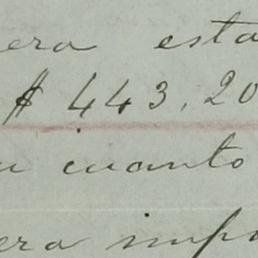 era esta
$ 443.20
u cuanto
era impo